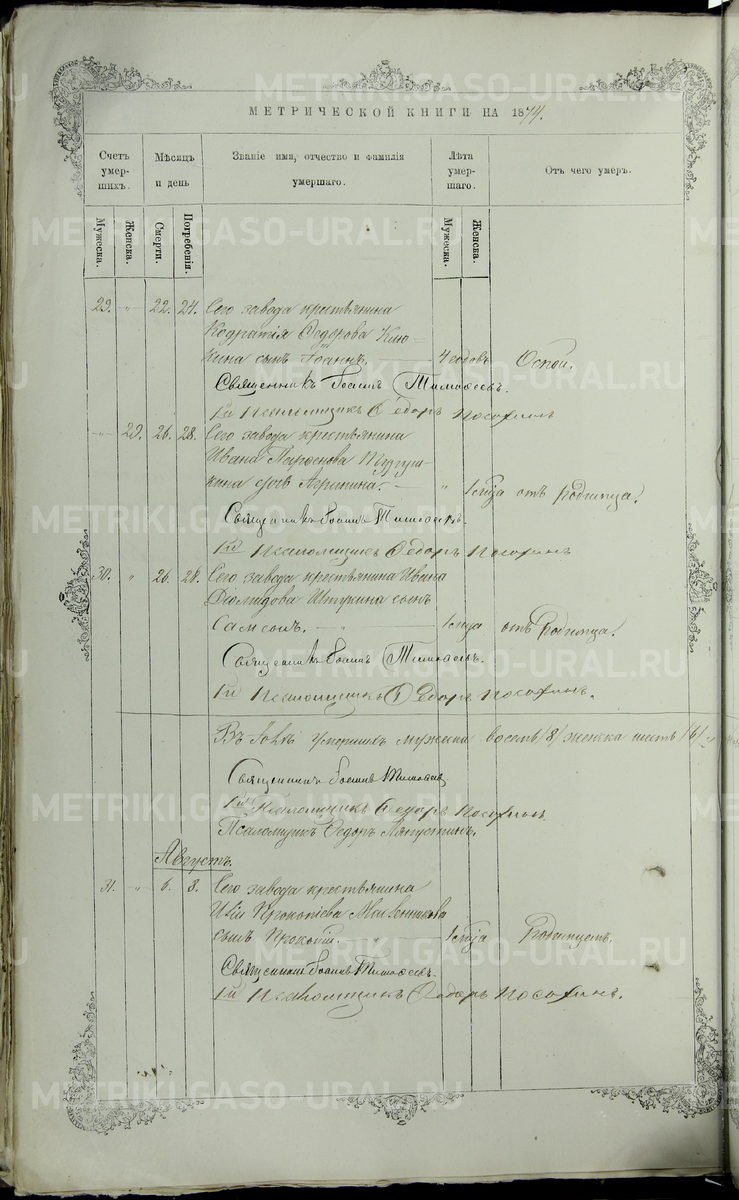 МЕТРИЧЕСКОЙ КНИГИ НА 1874.
Счетъ умершихъ.
Мѣсяцъ и день
Званіе имя, отчество и фамилія умершаго.
Лѣта умершаго.
Отъ чего умеръ.
Мужеска.
Женска.
Смерти.
Погребенія.
Мужеска.
Женска.
29. " 22. 24. Сего завода крестьянина
Кодратія Ѳедорова
кина сынъ Іоаннъ. 4 годовъ Оспой.
Священникъ Іоаннъ Тимоѳеевъ.
1й Псаломщикъ Ѳедоръ Посохинъ
" 29. 26. 28. Сего завода крестьянина
Ивана Парѳенова
кина дочь Агрипина. " 1 года отъ родимца.
Священникъ Іоаннъ Тимоѳеевъ.
1й Псаломщикъ Ѳедоръ Посохинъ
30. " 26. 28. Сего завода крестьянина Ивана
Діомидова Штукина сынъ
Самсонъ. 1 года отъ родимца.
Священникъ Іоаннъ Тимоѳеевъ.
1й Псаломщикъ Ѳедоръ Посохинъ.
Въ Іюлѣ умершихъ мужеска восемь /8/ женска шесть /6/
Священникъ Іоаннъ Тимоѳеевъ
1й Псаломщикъ Ѳедоръ Посохинъ
Псаломщикъ Ѳедоръ Ляпустинъ.
Августъ.
31. " 6. 8. Сего завода крестьянина
Иліи Прокопіева
сынъ Прокопій. 1 года Родимцемъ.
Священникъ Іоаннъ Тимоѳеевъ.
1й Псаломщикъ Ѳедоръ Посохинъ.
METRIKI.GASO-URAL.RU